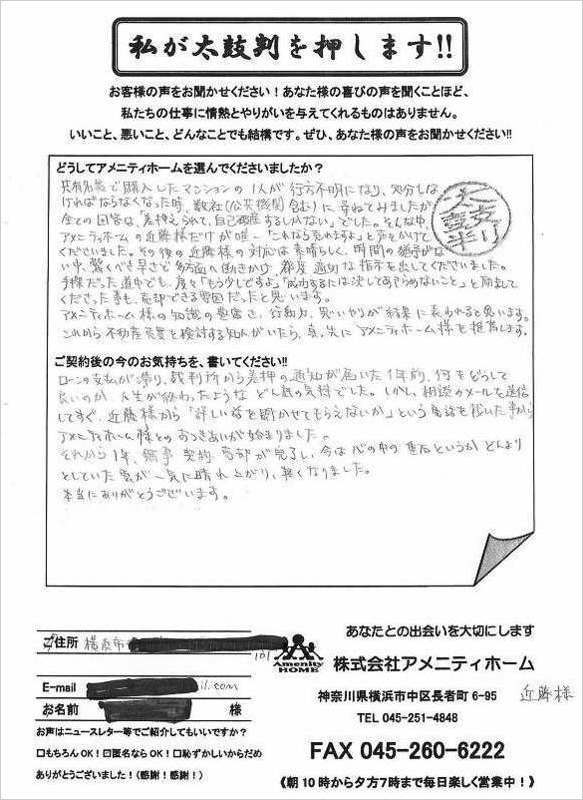 私が太鼓判を押します!!
お客様の声をお聞かせください！あなた様の喜びの声を聞くことほど、
私たちの仕事に情熱とやりがいを与えてくれるものはありません。
いいこと、悪いこと、どんなことでも結構です。ぜひ、あなた様の声をお聞かせください!!
どうしてアメニティホームを選んでくださいましたか？
共有名義で購入したマンションの1人が行方不明になり、処分しな
ければならなくなった時、数社(公共機関含む)に尋ねてみましたが
全ての回答は、「差押えられて、自己破産するしかない」でした。そんな中、
アメニティホームの近藤様だけが唯一「これなら売れますよ」と声をかけて
くださいました。その後の近藤様の対応は素晴らしく、時間の猶予がな
い中、驚くべき早さで多方面へ働きかけ、都度適切な指示を出してくださいました。
手探だった道中でも、度々「もう少しですよ」「成功するには決してあきらめないこと」と励まして
くださった事も、売却できる要因だったと思います。
アメニティホーム様の知識の豊富さ、行動力、思いやりが結果に表われると思います。
これから不動産売買を検討する知人がいたら、真先にアメニティホーム様を推薦します。
太鼓判
ご契約後の今のお気持ちを、書いてください!!
ローンの支払が滞り、裁判所から差押の通知が届いた1年前、何をどうして
良いのか、人生が終わったような どん底の気持でした。しかし、相談のメールを送信
してすぐ、近藤様から「詳しい話を聞かせてもらえないか」という電話を頂いた事から
アメニティホーム様とのおつきあいが始まりました。
それから1年、無事 契約 売却が完了し、今は心の中の重石というか どんより
としていた雲が一気に晴れ上がり、軽くなりました。
本当にありがとうございます。
ご住所 横浜市
101
E-mail il.com
お名前 様
お声はニュースレター等でご紹介してもいいですか？
□もちろんOK！☑匿名ならOK！□恥ずかしいからだめ
ありがとうございました！(感謝！感謝！)
あなたとの出会いを大切にします
Amenity HOME 株式会社アメニティホーム
神奈川県横浜市中区長者町6-95 近藤様
TEL 045-251-4848
FAX 045-260-6222
《朝10時から夕方7時まで毎日楽しく営業中！》